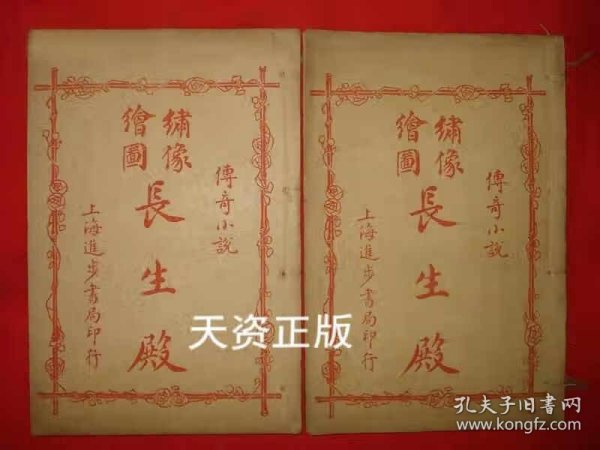 傳奇小說
繡像
繪圖
長生殿
上海進步書局印行
傳奇小說
繡像
繪圖
長生殿
上海進步書局印行
天资正版
孔夫子旧书网
www.kongfz.com